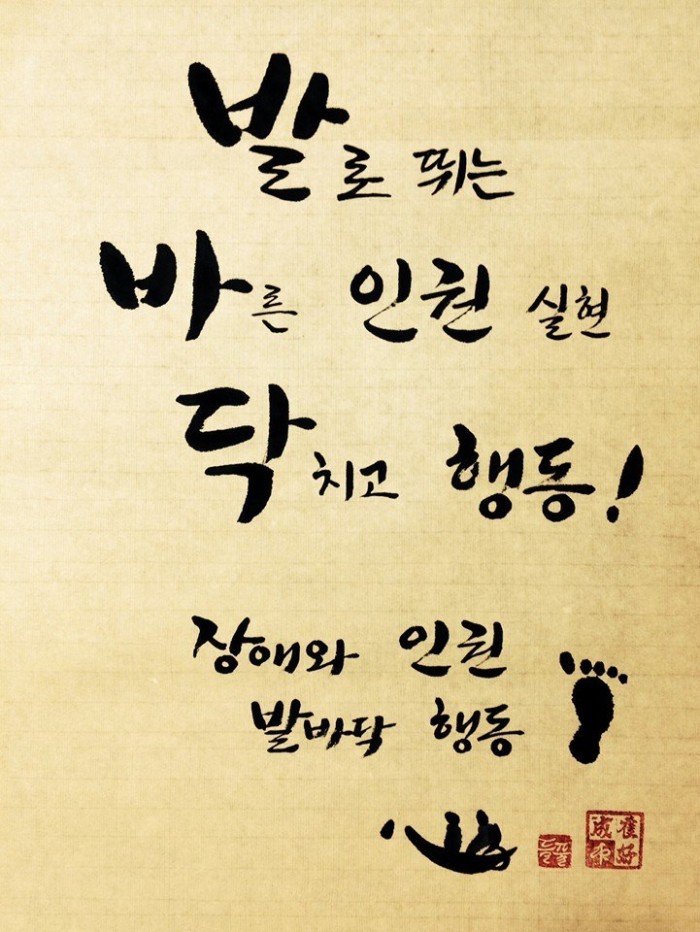 발로 뛰는
바른 인권 실현
닥치고 행동!
장애와 인권
발바닥 행동